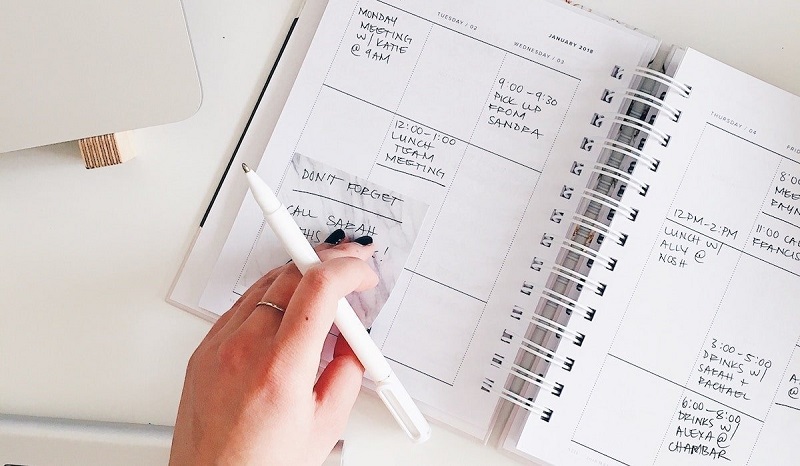 MONDAY
MEETING
W/ KATIE
@ 9AM
TUESDAY / 02
WEDNESDAY / 03
JANUARY 2018
9:00 - 9:30
PICK UP
FROM
SANDRA
12:00 - 1:00
LUNCH
TEAM
MEETING
DON'T FORGET
CALL SARAH
THURSDAY / 04
12PM - 2PM
LUNCH W/
ALLY @
NOSH
3:00 - 5:00
DRINKS W/
SARAH +
RACHAEL
6:00 - 8:00
DRINKS W/
ALEXA @
CHAMBAR
11:00